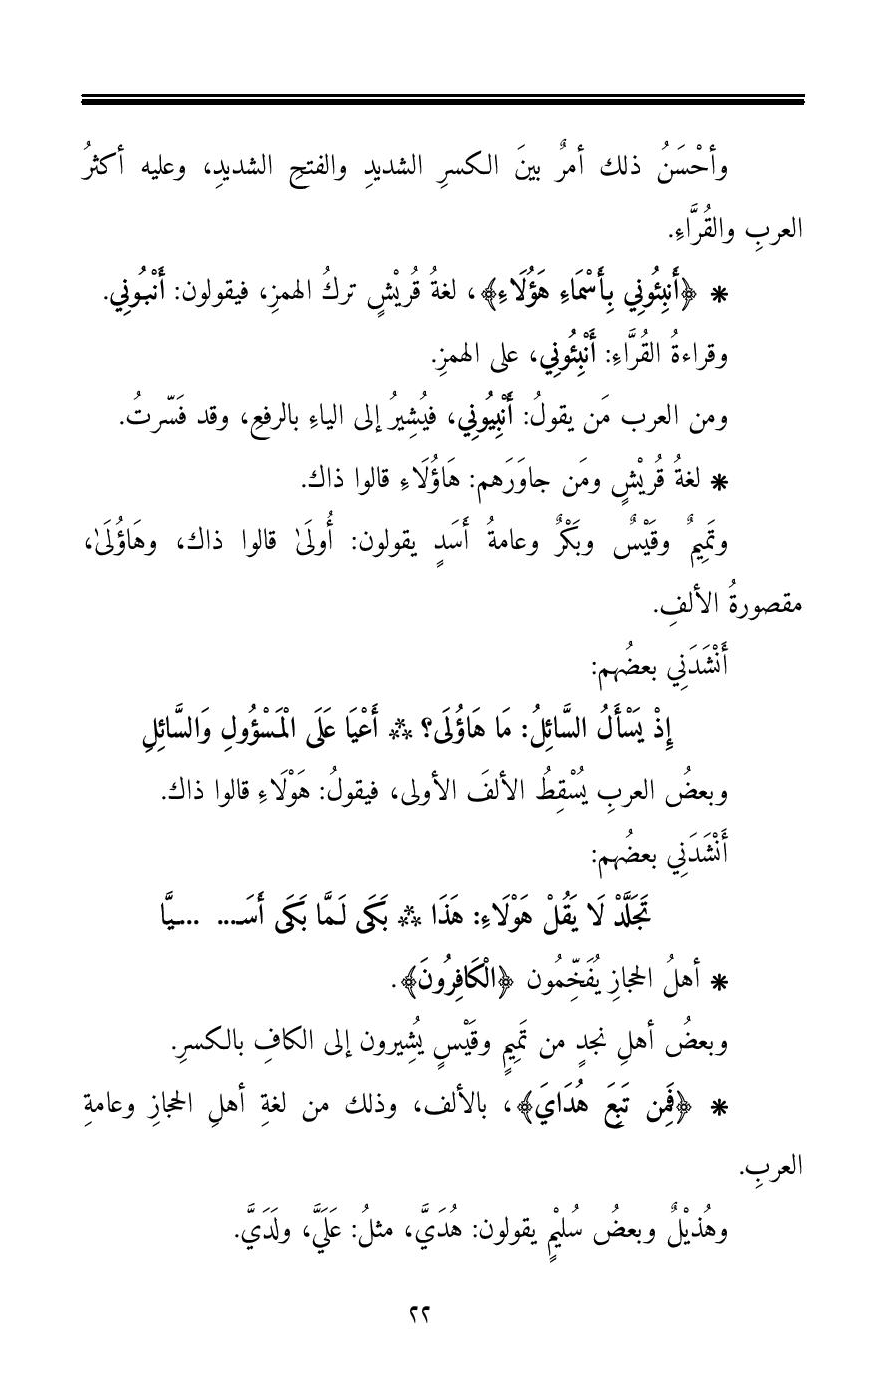 وأحْسَنُ ذلك أمرٌ بينَ الكسرِ الشديدِ والفتحِ الشديدِ، وعليه أكثرُ
العربِ والقُرَّاءِ.
* ﴿أَنبِئُونِي بِأَسْمَاءِ هَؤُلَاءِ﴾، لغةُ قُريْشٍ تركُ الهمزِ، فيقولون: أَنْبُونِي.
وقراءةُ القُرَّاءِ: أَنْبِئُونِي، على الهمزِ.
ومن العرب مَن يقولُ: أَنْبِيُونِي، فيُشِيرُ إلى الياءِ بالرفعِ، وقد فَسّرتُ.
* لغةُ قُريْشٍ ومَن جاوَرَهم: هَاؤُلَاءِ قالوا ذاك.
وتَمِيمٌ وقَيْسٌ وبَكْرٌ وعامةُ أَسَدٍ يقولون: أُولَىٰ قالوا ذاك، وهَاؤُلَىٰ،
مقصورةُ الألفِ.
أَنْشَدَنِي بعضُهم:
إِذْ يَسْأَلُ السَّائِلُ: مَا هَاؤُلَى؟ ⁂ أَعْيَا عَلَى الْمَسْؤُولِ وَالسَّائِلِ
وبعضُ العربِ يُسْقِطُ الألفَ الأولى، فيقولُ: هَوْلَاءِ قالوا ذاك.
أَنْشَدَنِي بعضُهم:
تَجَلَّدْ لَا يَقُلْ هَوْلَاءِ: هَذَا ⁂ بَكَى لَـمَّا بَكَى أَسَـ... ...ـيَّا
* أهلُ الحجازِ يُفَخِّمُون ﴿الْكَافِرُونَ﴾.
وبعضُ أهلِ نجدٍ من تَمِيمٍ وقَيْسٍ يُشِيرون إلى الكافِ بالكسرِ.
* ﴿فَمِن تَبِعَ هُدَايَ﴾، بالألف، وذلك من لغةِ أهلِ الحجازِ وعامةِ
العربِ.
وهُذيْلٌ وبعضُ سُليْمٍ يقولون: هُدَيَّ، مثلُ: عَلَيَّ، ولَدَيَّ.
٢٢